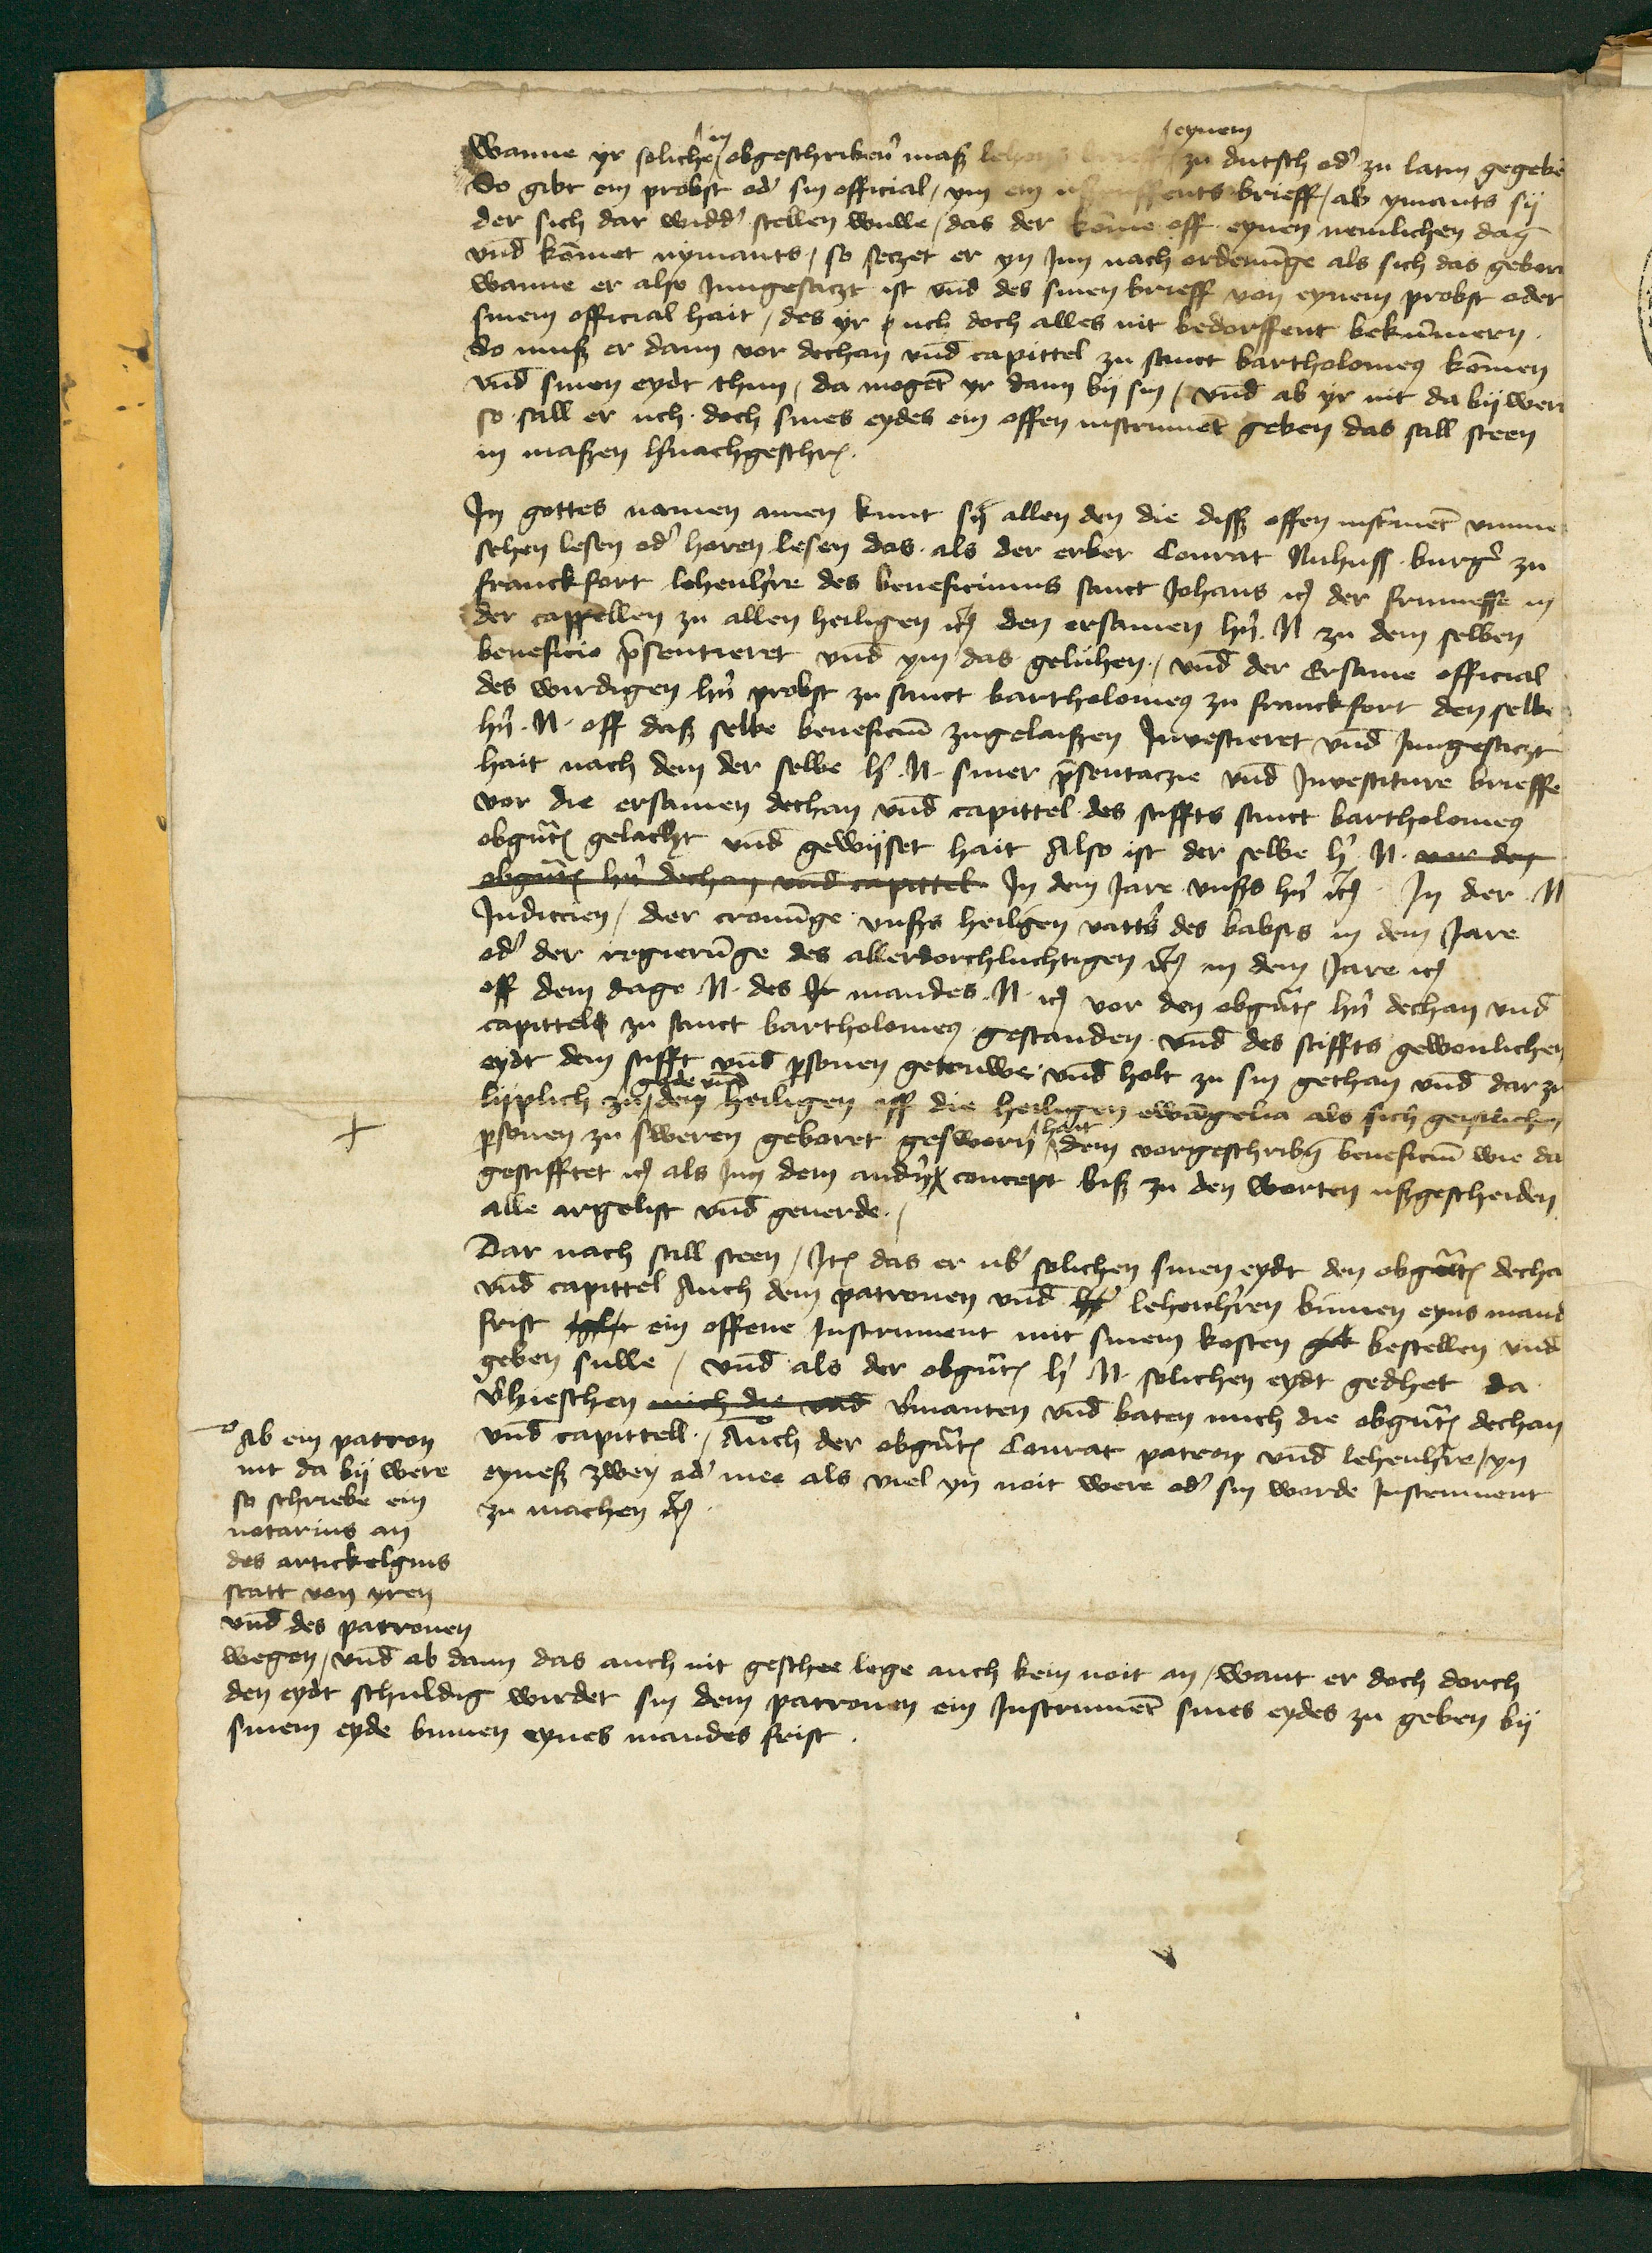 Wanne yr soliche in obgeschribeñ maß lehens brieff eynem zu dutsch od' zu latin gegebē
So gibt ein probst od' sin official / ym ein ußruffents brieff / ab ymants sij
der sich dar widd' stellen wulle / das der kōme off eynen nemlichen dag
vnd kōmet nymants / so seczet er yn Inn nach ordenūge als sich das gebort
wanne er also Inngesaczt ist vnd des sinen brieff von eynem probst oder
sinem official hait / des yr uch doch alles nit bedorffent bekūmern.
So muß er dann vor dechan vnd capittel zu sanct bartholomeꝯ kōmen
vnd sinen eydt thun / da mogēt yr dann bij sin / vnd ab yr nit da bij wert
so sall er uch doch sines eydes ein offen instrumēt geben das sall steen
in maßen h'nachgeschr.
In gottes namen amen kunt sij allen den die diß offen instrumēt vmme
sehen lesen od' horen lesen das als der erber Conrat Nuhuß burg' zu
franckfort lehenh're des beneficiums sanct Johans ꝛc der frumesse in
der cappellen zu allen heiligen ꝛc den ersamen h'n N zu dem selben
beneficio p̄sentieret vnd ym das geluhen / vnd der Ersame official
des wirdigen h'n probst zu sanct bartholomeꝯ zu franckfort den selbē
h'n N off daß selbe beneficiū zugelaißen Investieret vnd Inngesaczt
hait nach dem der selbe h' N siner p̄sentaczie vnd Investiture brieffe
vor die ersamen dechan vnd capittel des stiffts sanct bartholomeꝯ
obgn̄t gelacht vnd gewijset hait Also ist der selbe h' N vor den
obgn̄t h'n dechan vnd capittel In dem Jare vnßs h'n ꝛc In der N
Indiccien / der cronūge vnßs heiligen vatt's des babsts in dem Jare
od' der regierūge des allerdorchluchtigen ꝛc in dem Jare ꝛc
off dem dage N des mandes N ꝛc vor den obgn̄t h'n dechan vnd
capittel zu sanct bartholomeꝯ gestanden vnd des stiffts gewonlichen
eydt dem stifft vnd p̱sonen getruwe vnd holt zu sin gethan vnd dar zu
lijplich zu gode vnd den heiligen uff die heiligen ewāgelia als sich geistlichen
p̱sonen zu sweren geboret gesworn hait dem vorgeschribn̄ beneficiū wie da
gestifftet ꝛc als Inn dem and'n concept biß zu den worten ußgescheiden
alle argelist vnd geuerde.
Dar nach sall steen / It̄ das er ub' solichen sinen eydt den obgn̄tē decha
vnd capittel Auch dem patronen vnd lehenh'ren bīnnen eyns mand
frist ein offene Instrument mit sinem kosten bestellen vnd
geben sulle / vnd als der obgn̄t h' N solichen eydt gedhet da
v'hieschen mich die vnd v'manten vnd baten mich die obgn̄t dechan
vnd capittell / Auch der obgn̄t Conrat patron vnd lehenh're / yn
eyneß zwey od' mee als viel yn noit were od' sin worde Instrument
zu machen ꝛc
Ab ein patron
nit da bij were
so schriebe ein
notarius an
des artickelgins
statt von yren
vnd des patronen
wegen / vnd ab dann das auch nit geschee lege auch kein noit an / want er doch dorch
den eydt schuldig wirdet sin dem patronen ein Instrumēt sines eydes zu geben bij
sinem eyde binnen eynes mandes frist.